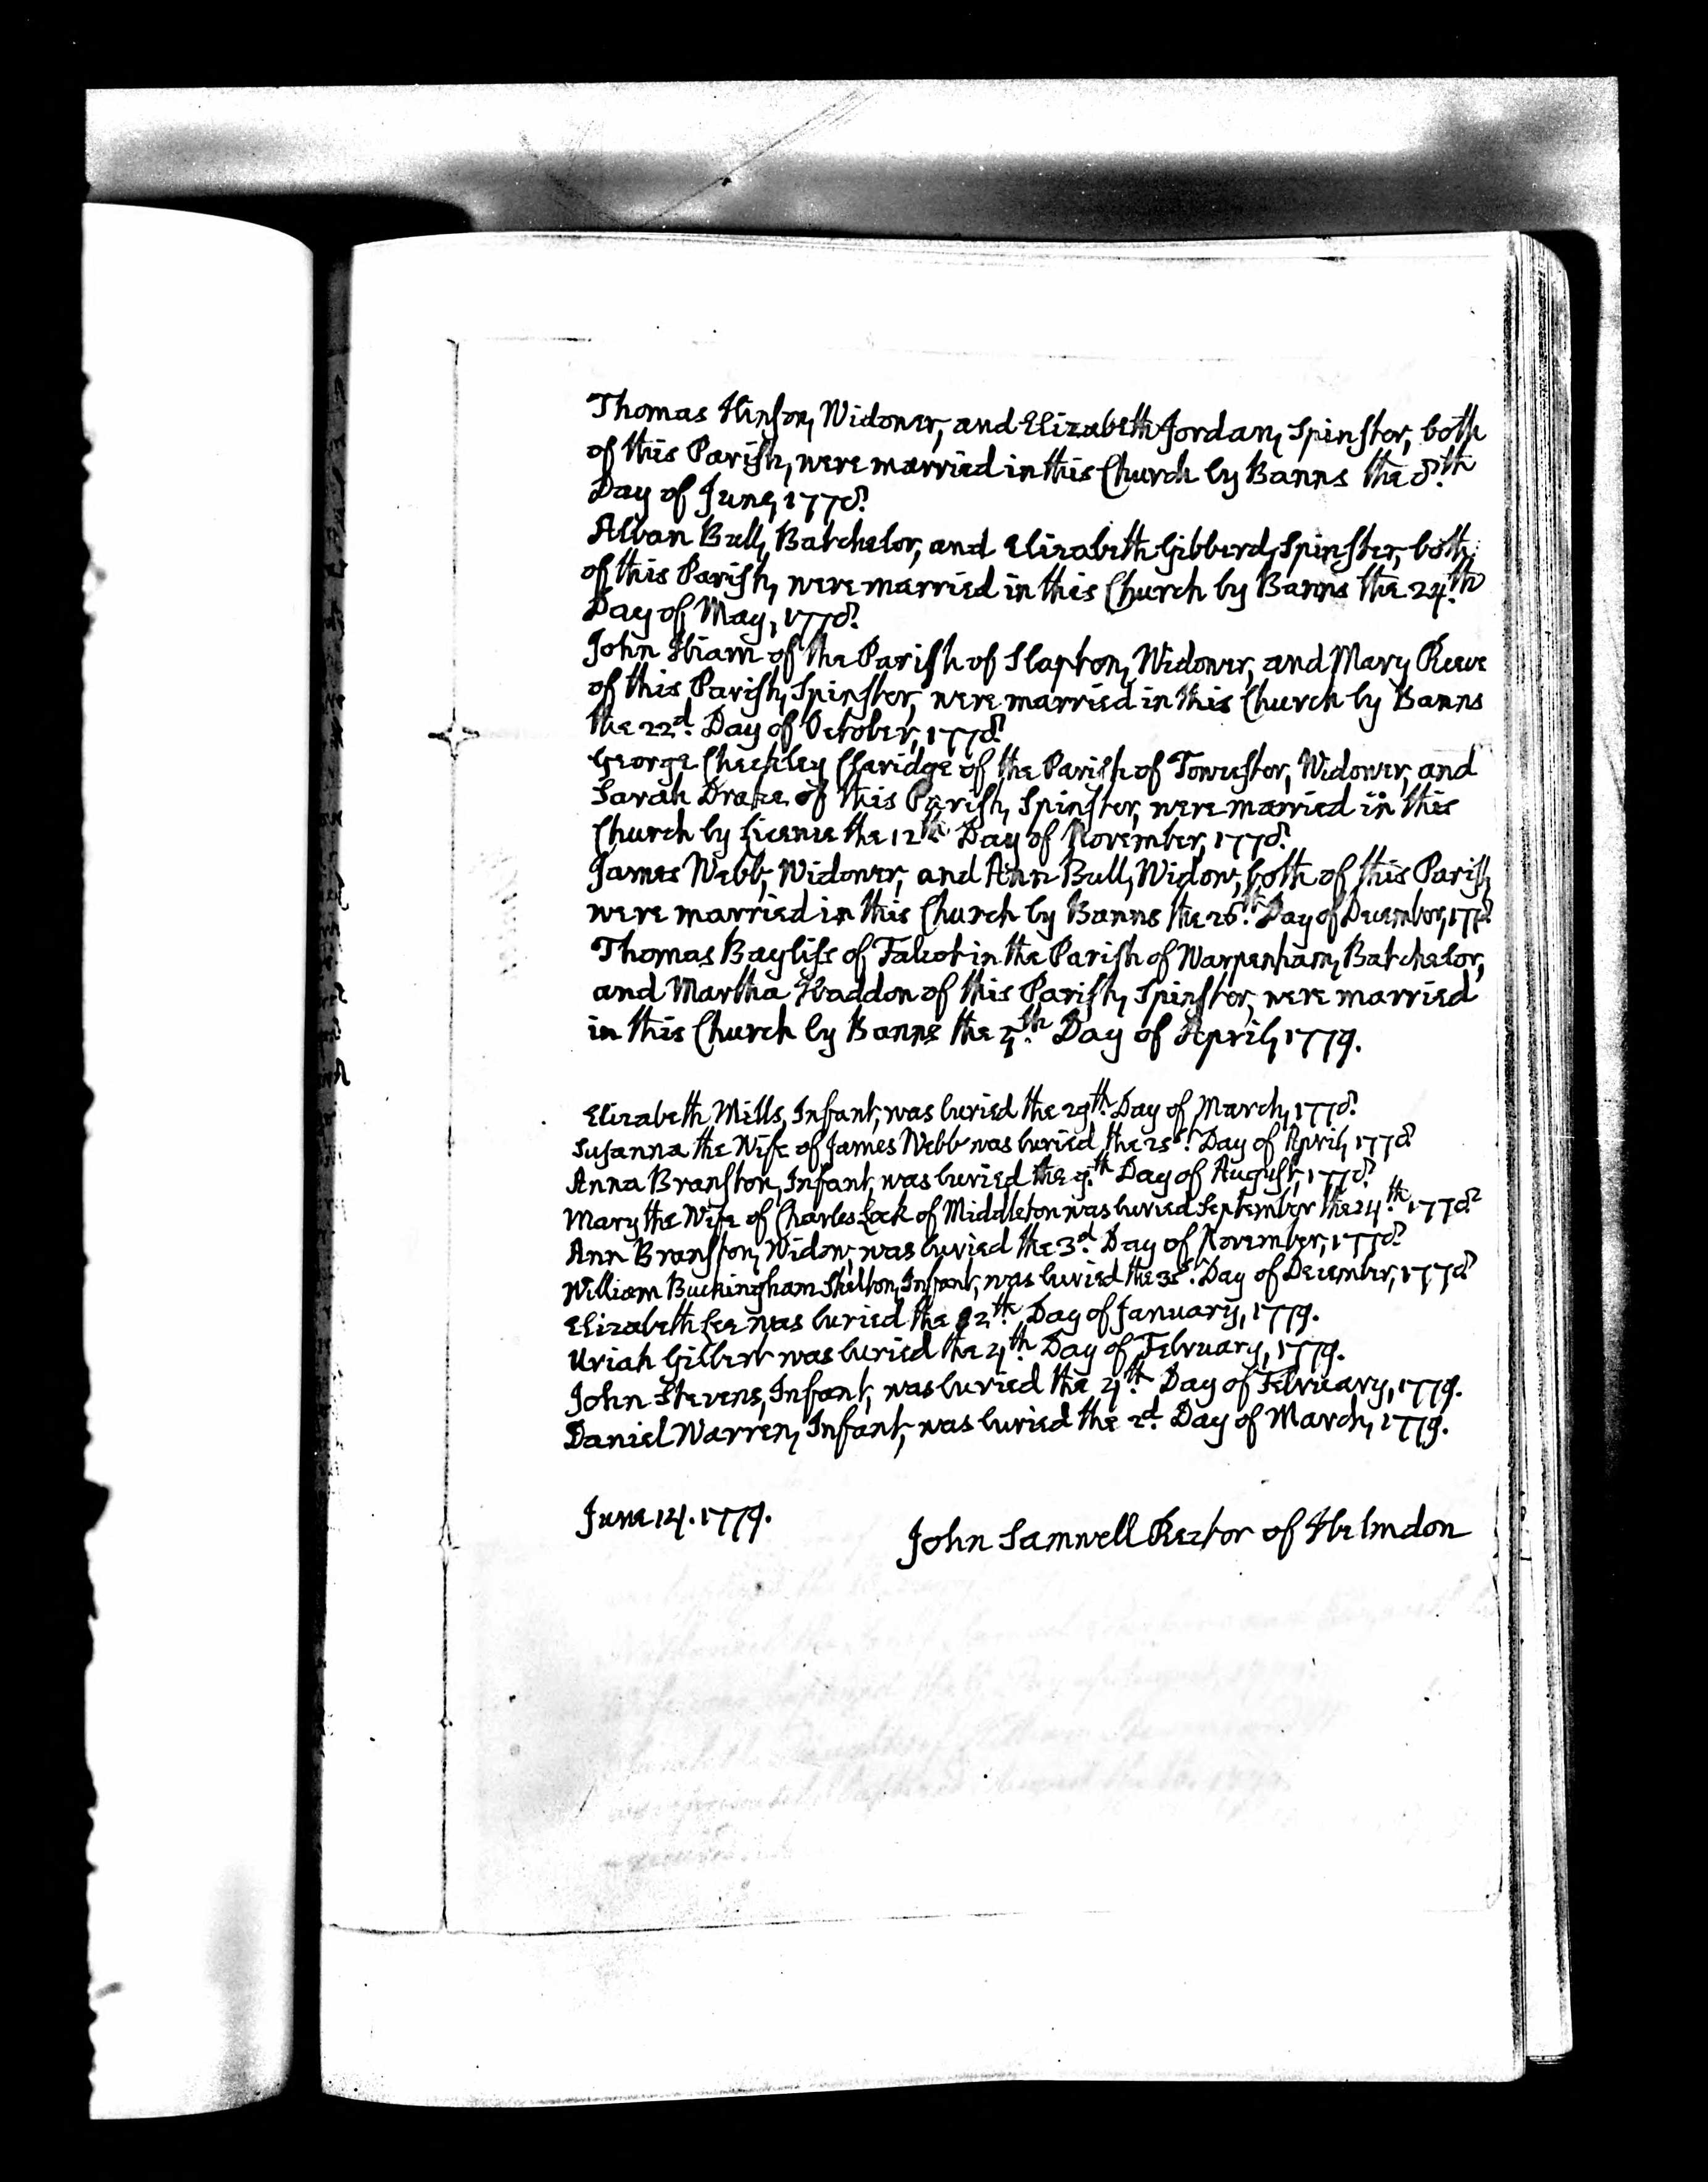 Thomas Hinson, Widower, and Elizabeth Jordan, Spinster, both
of this Parish, were married in this Church by Banns the 8th
Day of June, 1778.
Alban Bull, Batchelor, and Elizabeth Gibberd, Spinster, both
of this Parish, were married in this Church by Banns the 24th
Day of May, 1778.
John Hiam of the Parish of Slapton, Widower, and Mary Reeve
of this Parish, Spinster, were married in this Church by Banns
the 22d. Day of October, 1778.
George Checkley Claridge of the Parish of Towcester, Widower, and
Sarah Drake of this Parish, Spinster, were married in this
Church by Licence the 12th Day of November, 1778.
James Webb, Widower, and Ann Bull, Widow, both of this Parish
were married in this Church by Banns the 26th. Day of December, 1778
Thomas Bayliss of Falcot in the Parish of Warpenham, Batchelor,
and Martha Haddon of this Parish, Spinster, were married
in this Church by Banns the 5th. Day of April, 1779.
Elizabeth Mills, Infant, was buried the 29th. Day of March, 1778.
Susanna the Wife of James Webb was buried the Day of April, 1778.
Anna Branston, Infant, was buried the 9th. Day of August, 1778.
Mary the Wife of Charles Lock of Middleton was buried September the 24th. 1778.
Ann Branston, Widow, was buried the 3d. Day of November, 1778.
William Buckingham Skelton, Infant, was buried the Day of December, 1778.
Elizabeth Lee was buried the 12th. Day of January, 1779.
Uriah Gilbert was buried the 4th. Day of February, 1779.
John Stevens, Infant, was buried the 4th. Day of February, 1779.
Daniel Warren, Infant, was buried the 2d. Day of March, 1779.
June 14. 1779.
John Samwell Rector of Helmdon